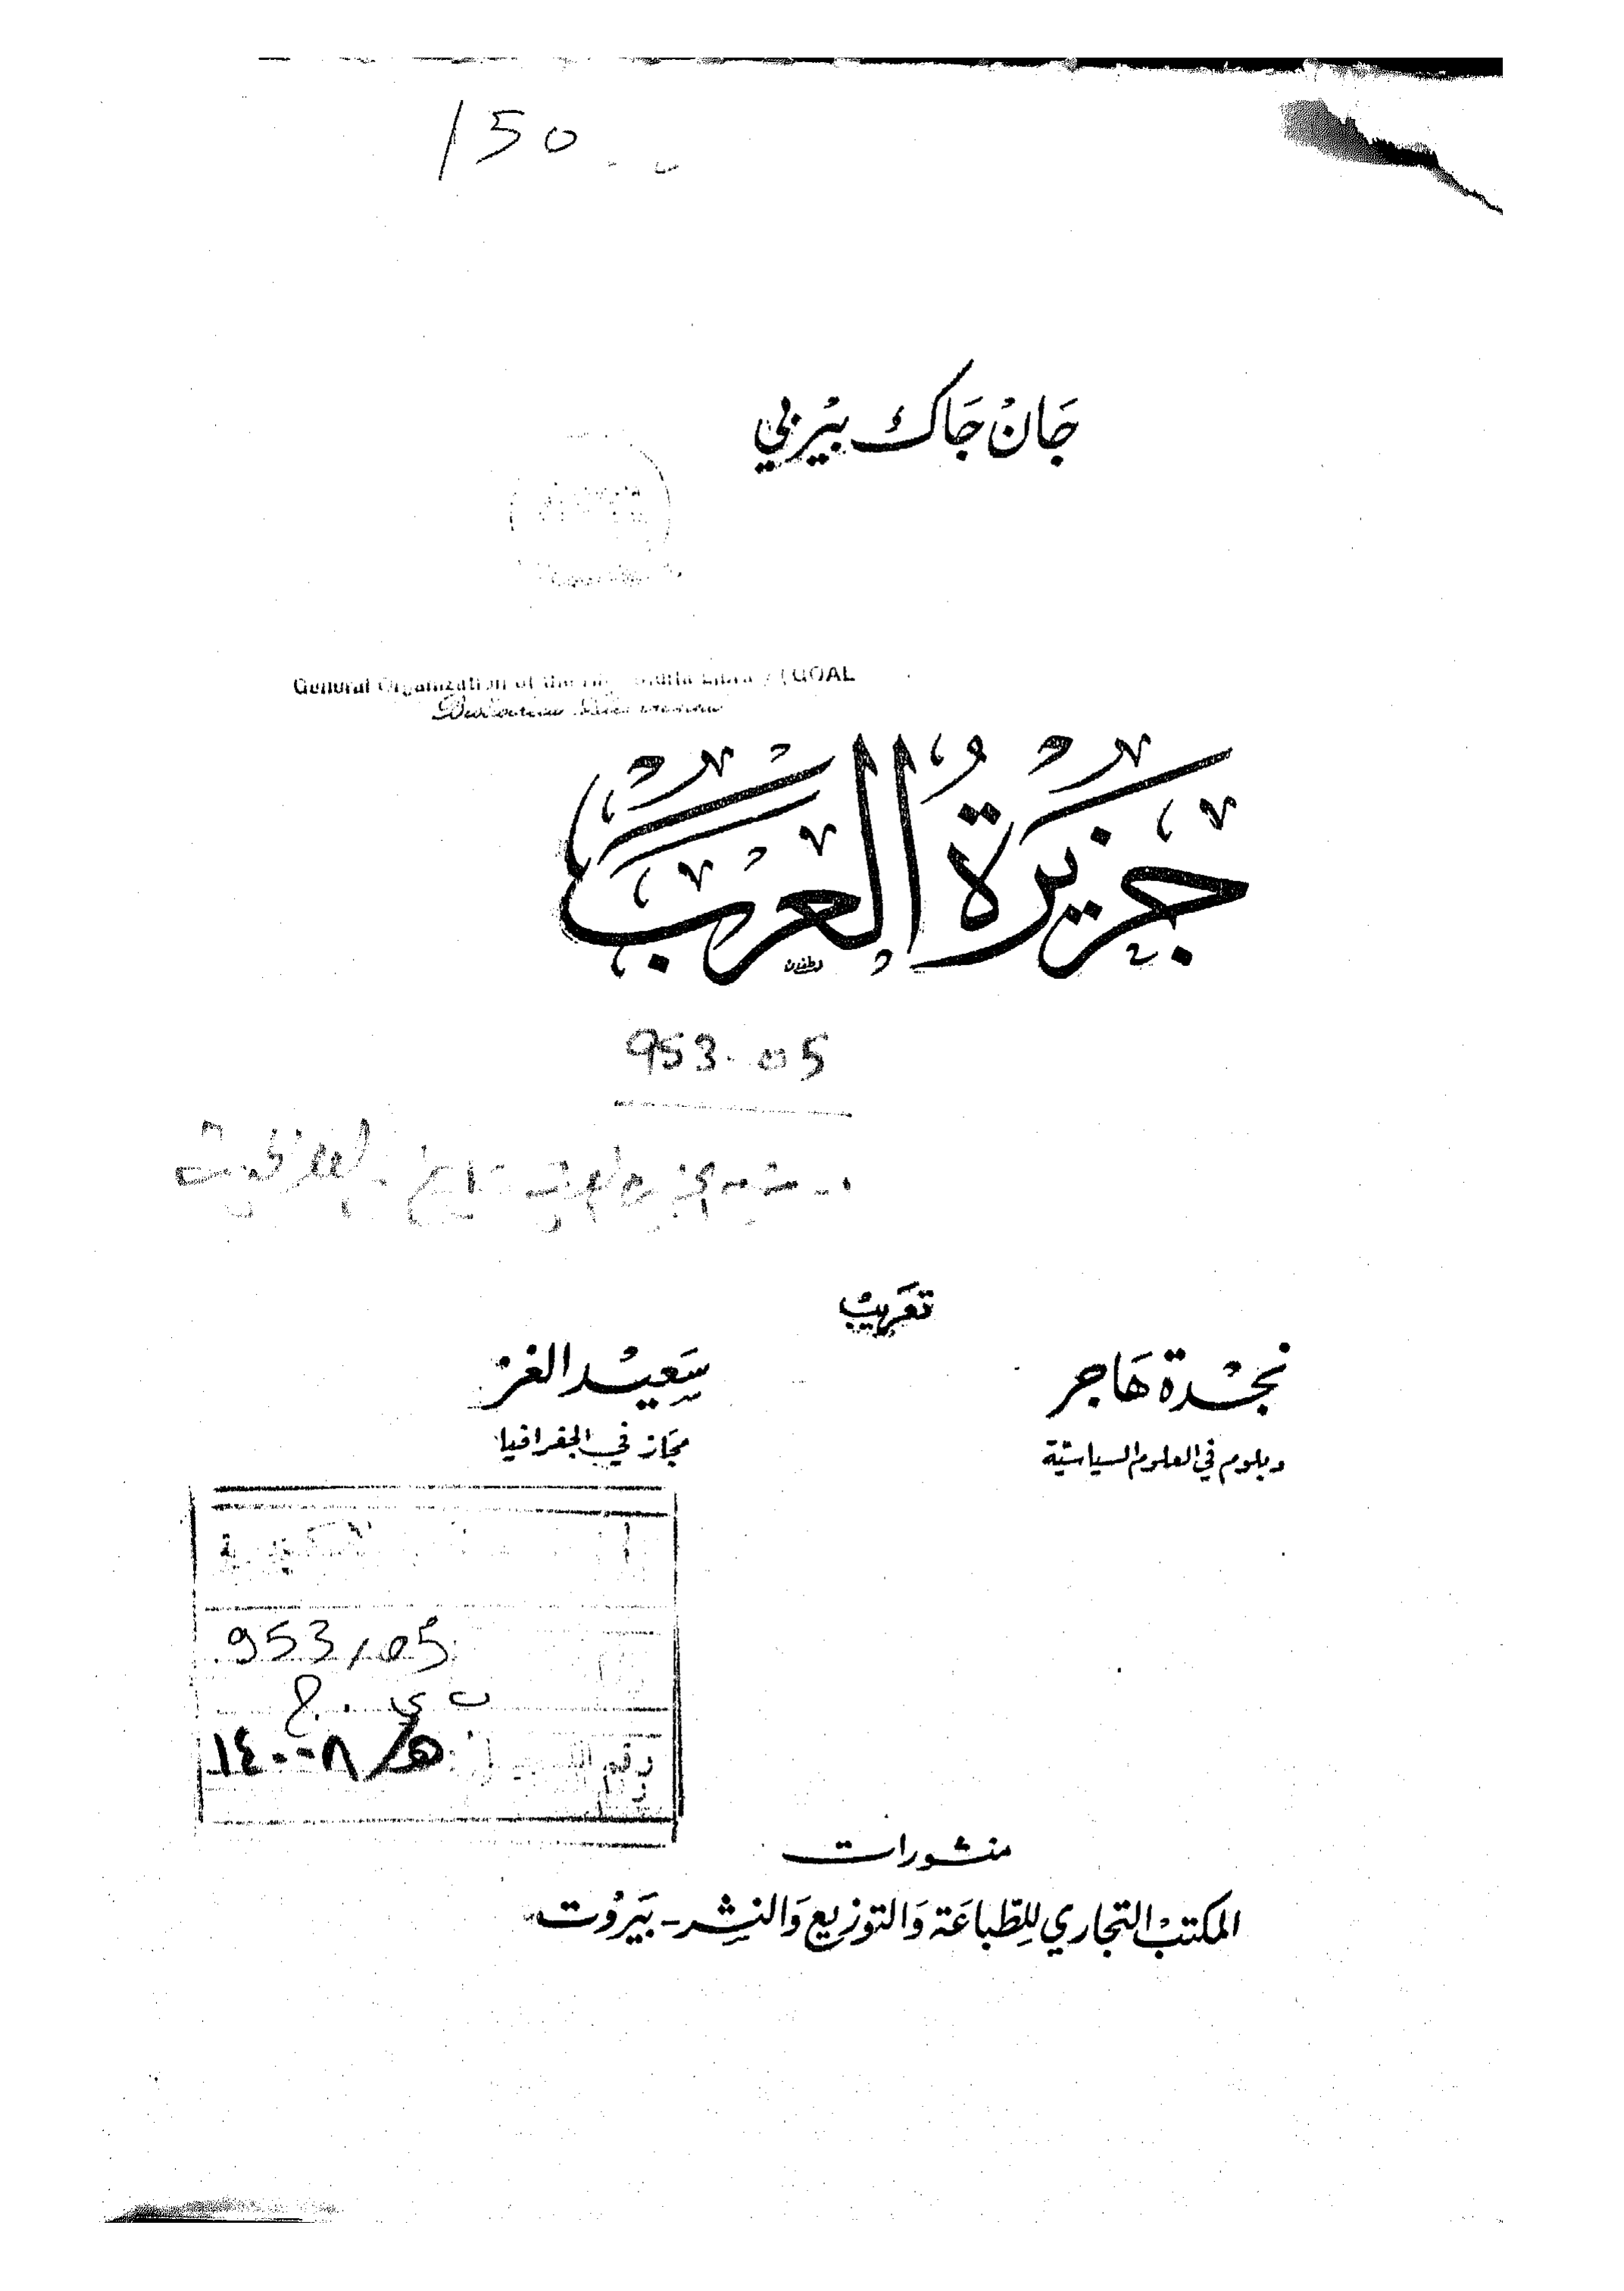 150
جَانْ جَاك بيْربي
General Organization of the Alexandria Library (GOAL
جَزيرَةُ العَرَبْ
953.05
تعَريبْ
نجْدة هَاجر
دبلوم في العلوم السياسيّة
سَعيْد الغز
مجَاز في الجغرافيا
953,05
ب ي . ج
رقم
١٤٠٠٨/ه
منشورات
المكتبْ التجاري للِطّباعَة وَالتوزيع وَالنشِر - بَيرُوت